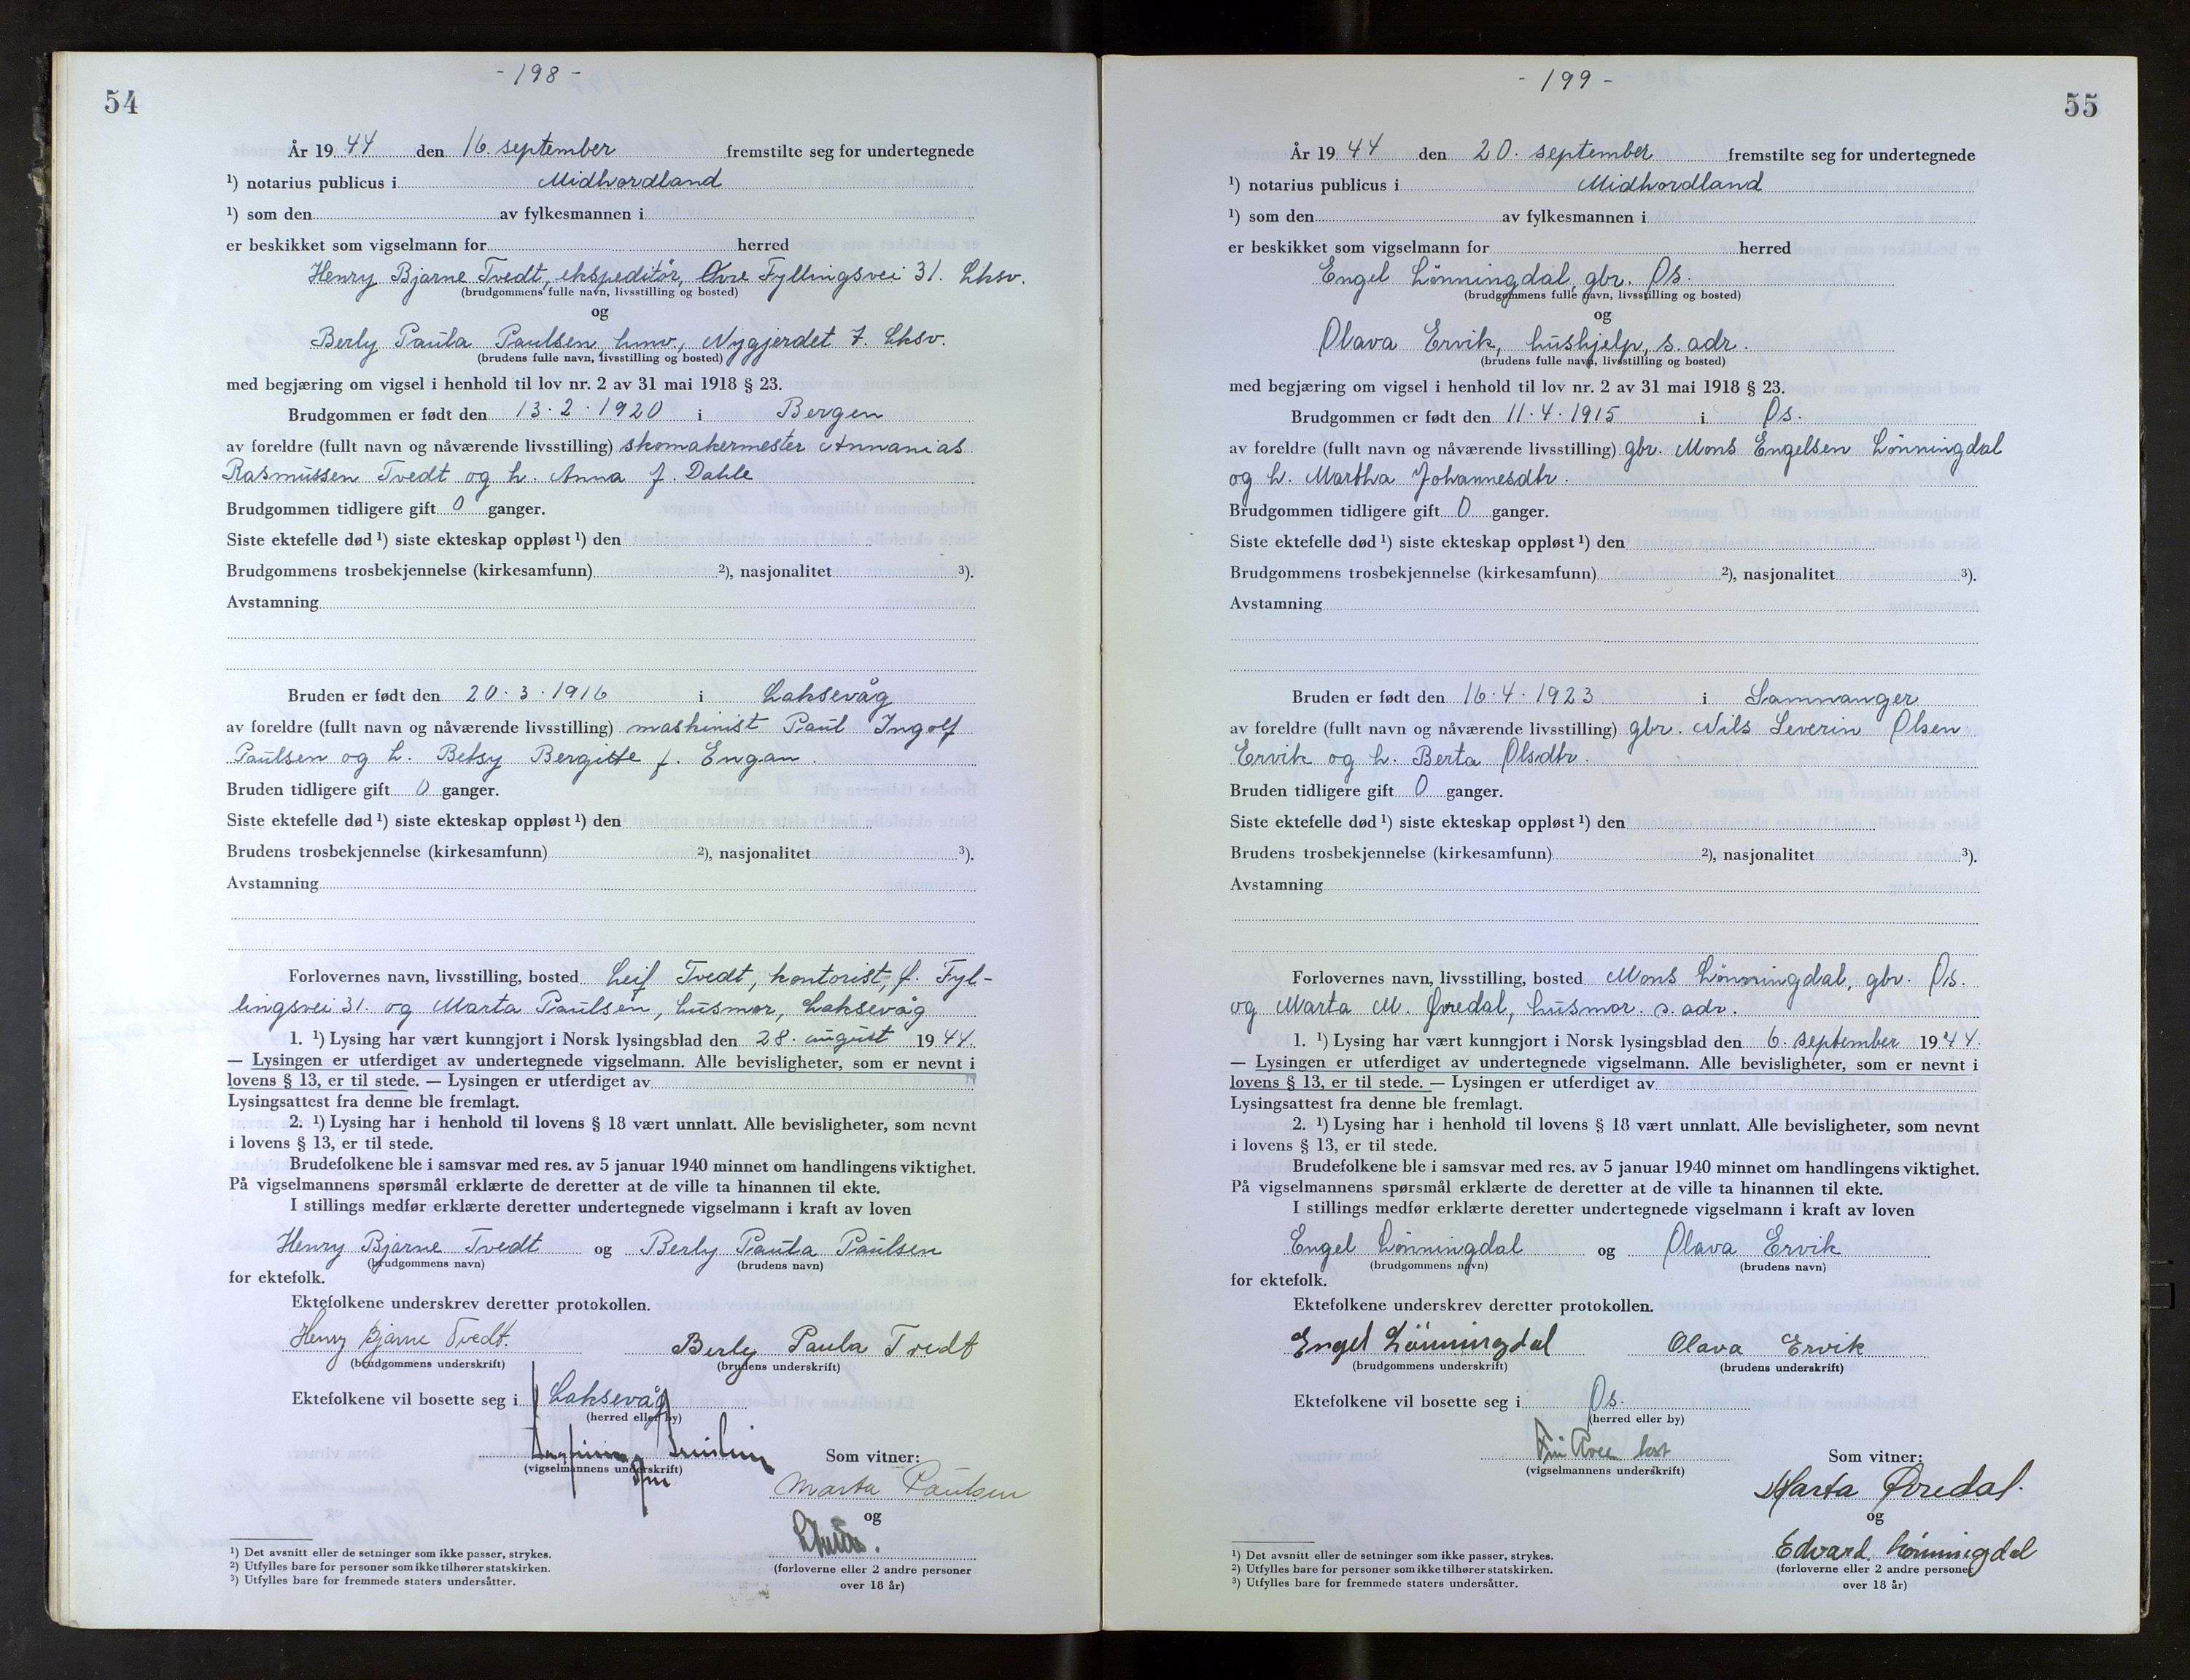 - 198 -
54
År 19 44 den 16. september fremstilte seg for undertegnede
¹) notarius publicus i Midhordland
¹) som den av fylkesmannen i
er beskikket som vigselmann for herred
Henry Bjarne Tvedt, ekspeditør, Øvre Fyllingsvei 31. Lksv.
(brudgommens fulle navn, livsstilling og bosted)
og
Berly Paula Paulsen hmv, Nygjerdet 7. Lksv.
(brudens fulle navn, livsstilling og bosted)
med begjæring om vigsel i henhold til lov nr. 2 av 31 mai 1918 § 23.
Brudgommen er født den 13.2.1920 i Bergen
av foreldre (fullt navn og nåværende livsstilling) skomakermester Annanias
Rasmussen Tvedt og h. Anna f. Dahle
Brudgommen tidligere gift 0 ganger.
Siste ektefelle død ¹) siste ekteskap oppløst ¹) den
Brudgommens trosbekjennelse (kirkesamfunn) ²), nasjonalitet ³).
Avstamning
Bruden er født den 20.3.1916 i Laksevåg
av foreldre (fullt navn og nåværende livsstilling) maskinist Paul Ingolf
Paulsen og h. Betsy Bergitte f. Engan.
Bruden tidligere gift 0 ganger.
Siste ektefelle død ¹) siste ekteskap oppløst ¹) den
Brudens trosbekjennelse (kirkesamfunn) ²), nasjonalitet ³).
Avstamning
Forlovernes navn, livsstilling, bosted Leif Tvedt, kontorist, Ø. Fyl-
lingsvei 31. og Marta Paulsen, husmor, Laksevåg
1. ¹) Lysing har vært kunngjort i Norsk lysingsblad den 28. august 19 44.
— Lysingen er utferdiget av undertegnede vigselmann. Alle bevisligheter, som er nevnt i
lovens § 13, er til stede. — Lysingen er utferdiget av
Lysingsattest fra denne ble fremlagt.
2. ¹) Lysing har i henhold til lovens § 18 vært unnlatt. Alle bevisligheter, som nevnt
i lovens § 13, er til stede.
Brudefolkene ble i samsvar med res. av 5 januar 1940 minnet om handlingens viktighet.
På vigselmannens spørsmål erklærte de deretter at de ville ta hinannen til ekte.
I stillings medfør erklærte deretter undertegnede vigselmann i kraft av loven
Henry Bjarne Tvedt og Berly Paula Paulsen
(brudgommens navn) (brudens navn)
for ektefolk.
Ektefolkene underskrev deretter protokollen.
Henry Bjarne Tvedt. Berly Paula Tvedt
(brudgommens underskrift) (brudens underskrift)
Ektefolkene vil bosette seg i Laksevåg
(herred eller by)
Som vitner:
(vigselmannens underskrift)
Marta Paulsen
og
(forloverne eller 2 andre personer
over 18 år)
¹) Det avsnitt eller de setninger som ikke passer, strykes.
²) Utfylles bare for personer som ikke tilhører statskirken.
³) Utfylles bare for fremmede staters undersåtter.
- 199 -
55
År 19 44 den 20. september fremstilte seg for undertegnede
¹) notarius publicus i Midhordland
¹) som den av fylkesmannen i
er beskikket som vigselmann for herred
Engel Lønningdal, gbr. Os.
(brudgommens fulle navn, livsstilling og bosted)
og
Olava Ervik, hushjelp, s. adr.
(brudens fulle navn, livsstilling og bosted)
med begjæring om vigsel i henhold til lov nr. 2 av 31 mai 1918 § 23.
Brudgommen er født den 11.4.1915 i Os.
av foreldre (fullt navn og nåværende livsstilling) gbr. Mons Engelsen Lønningdal
og h. Martha Johannesdtr.
Brudgommen tidligere gift 0 ganger.
Siste ektefelle død ¹) siste ekteskap oppløst ¹) den
Brudgommens trosbekjennelse (kirkesamfunn) ²), nasjonalitet ³).
Avstamning
Bruden er født den 16.4.1923 i Samnanger
av foreldre (fullt navn og nåværende livsstilling) gbr. Nils Severin Olsen
Ervik og h. Berta Olsdtr.
Bruden tidligere gift 0 ganger.
Siste ektefelle død ¹) siste ekteskap oppløst ¹) den
Brudens trosbekjennelse (kirkesamfunn) ²), nasjonalitet ³).
Avstamning
Forlovernes navn, livsstilling, bosted Mons Lønningdal, gbr. Os.
og Marta M. Øvredal, husmor. s. adr.
1. ¹) Lysing har vært kunngjort i Norsk lysingsblad den 6. september 19 44.
— Lysingen er utferdiget av undertegnede vigselmann. Alle bevisligheter, som er nevnt i
lovens § 13, er til stede. — Lysingen er utferdiget av
Lysingsattest fra denne ble fremlagt.
2. ¹) Lysing har i henhold til lovens § 18 vært unnlatt. Alle bevisligheter, som nevnt
i lovens § 13, er til stede.
Brudefolkene ble i samsvar med res. av 5 januar 1940 minnet om handlingens viktighet.
På vigselmannens spørsmål erklærte de deretter at de ville ta hinannen til ekte.
I stillings medfør erklærte deretter undertegnede vigselmann i kraft av loven
Engel Lønningdal og Olava Ervik
(brudgommens navn) (brudens navn)
for ektefolk.
Ektefolkene underskrev deretter protokollen.
Engel Lönningdal Olava Ervik
(brudgommens underskrift) (brudens underskrift)
Ektefolkene vil bosette seg i Os.
(herred eller by)
Som vitner:
(vigselmannens underskrift)
Marta Øvredal.
og
Edvard Lönningdal
(forloverne eller 2 andre personer
over 18 år)
¹) Det avsnitt eller de setninger som ikke passer, strykes.
²) Utfylles bare for personer som ikke tilhører statskirken.
³) Utfylles bare for fremmede staters undersåtter.